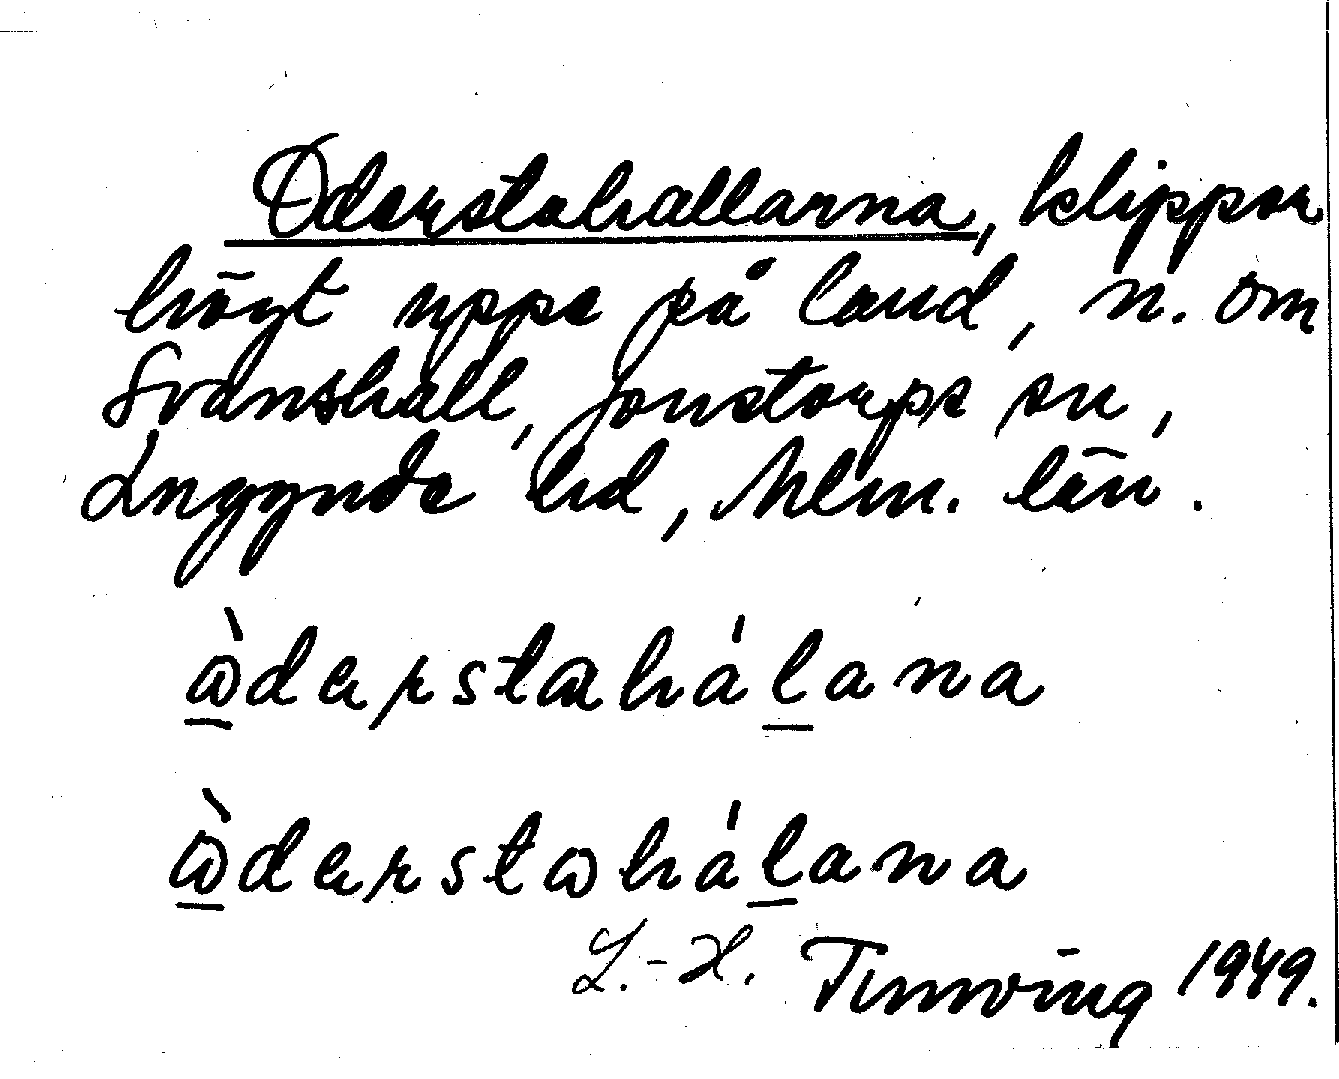 Oderstahallarna, klippor
högt uppe på land, n. om
Svanshall, Jonstorps sn,
Luggude hd, Mlm. län.
ὼderstahálana
ὼderstωhálana
L.-H. Tunving 1949.